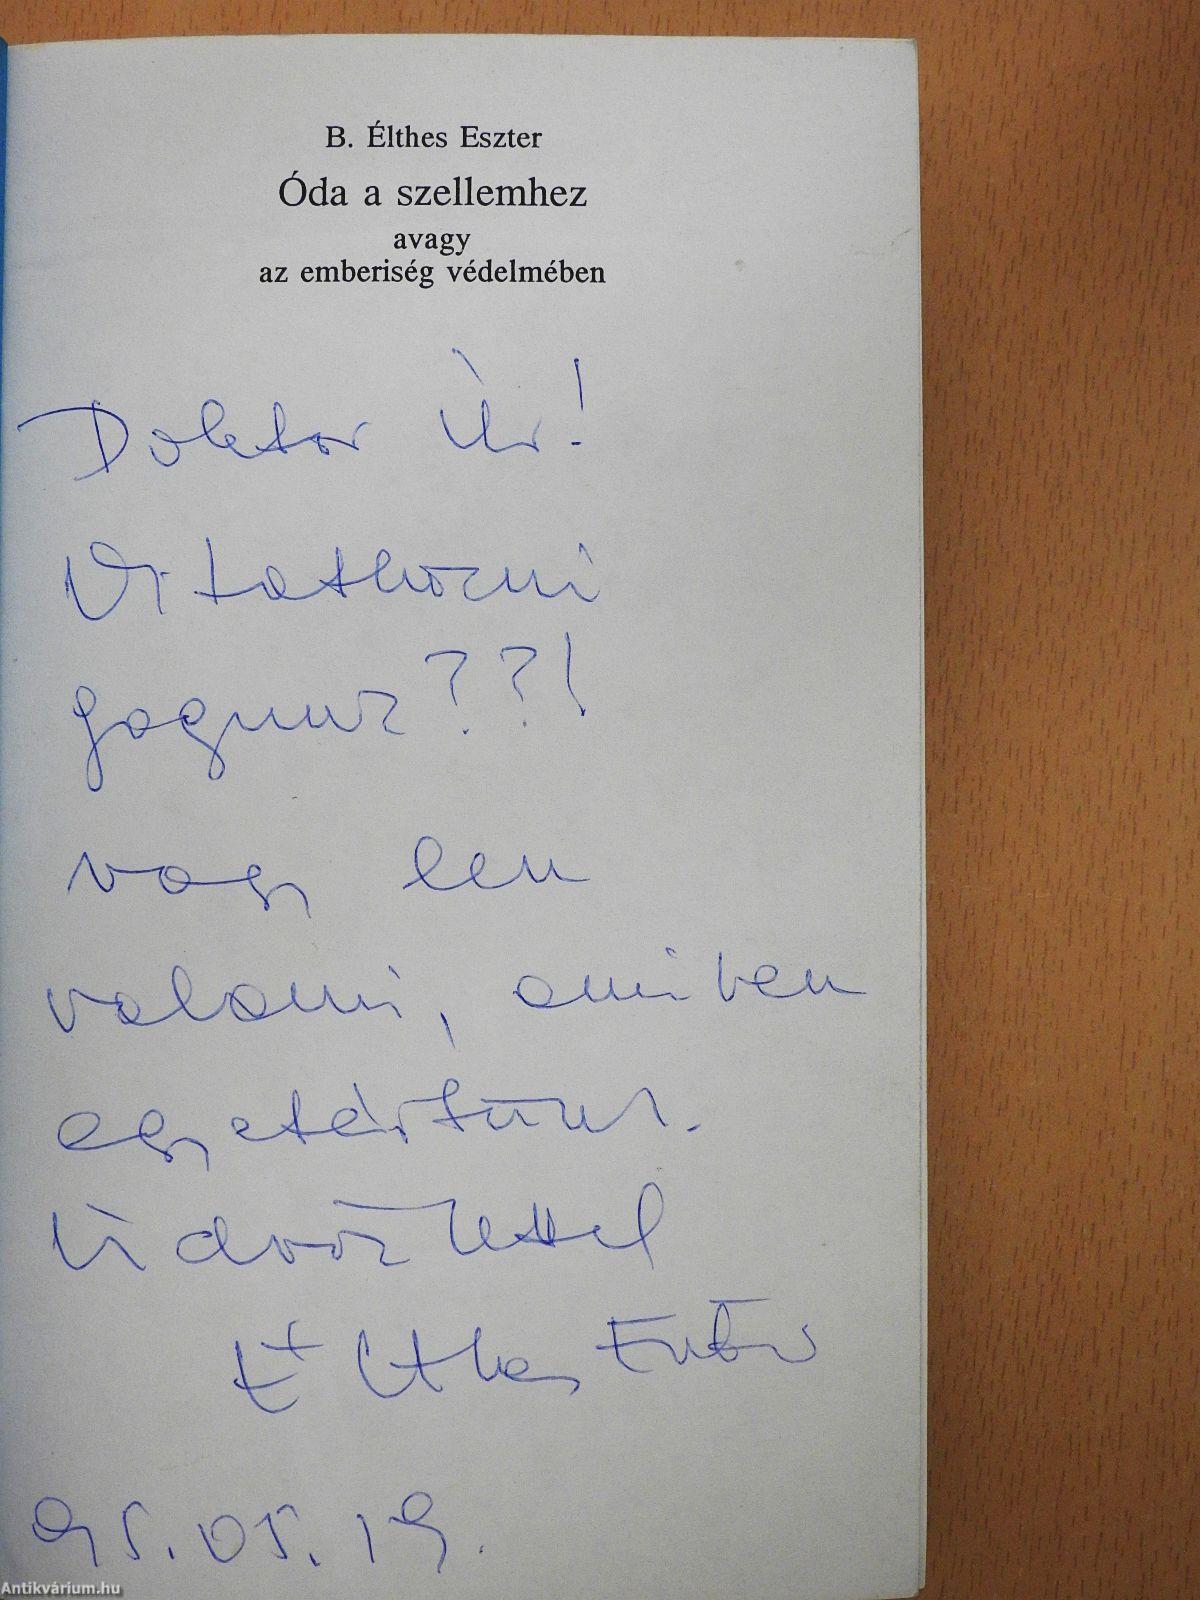 B. Élthes Eszter
Óda a szellemhez
avagy
az emberiség védelmében
Doktor Úr!
Vitatkozni
fogunk??!
vagy lesz
valami, amiben
egyetértünk.
Üdvözlettel
Élthes Eszter
95.05.19.
Antikvárium.hu